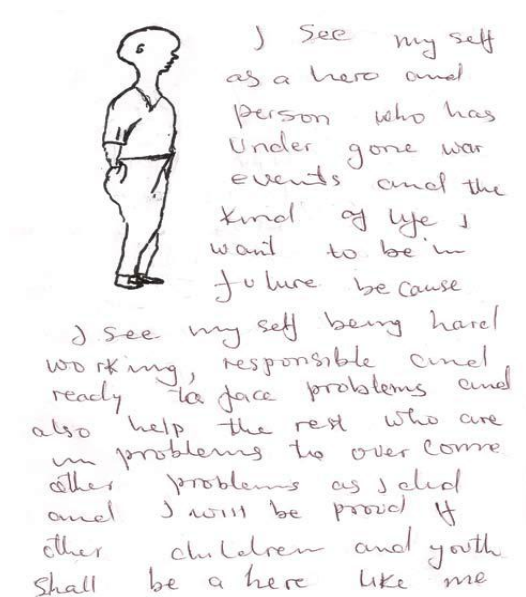 I see my self
as a hero and
person who has
under gone war
events and the
kind of life I
want to be in
future be cause
I see my self being hard
working, responsible and
ready to face problems and
also help the rest who are
in problems to over come
other problems as I did
and I will be proud if
other children and youth
shall be a here like me